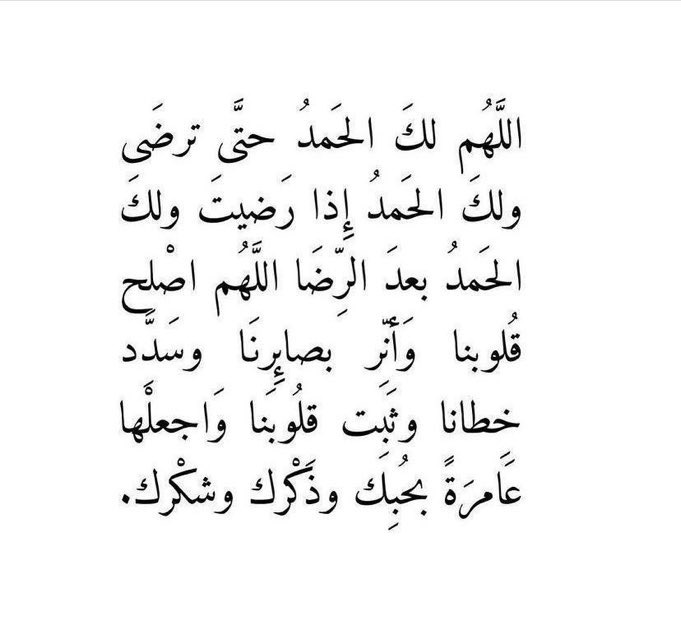 اللَّهُم لكَ الحَمدُ حتَّى ترضَى
ولكَ الحَمدُ إِذا رَضيتَ ولكَ
الحَمدُ بعدَ الرِّضَا اللَّهُم اصْلِح
قُلوبنا وَأنِّر بصايِرنَا وسَدَّد
خطانا وثَبِت قلُوبَنا وَاجعلْها
عَامرَةً بحُبِك وذَكْرك وشكْرك.